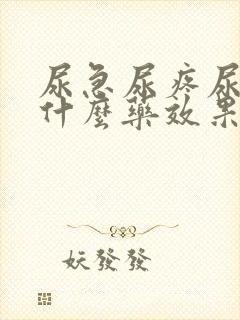 尿急尿疼尿
什麼藥效果
妖發發